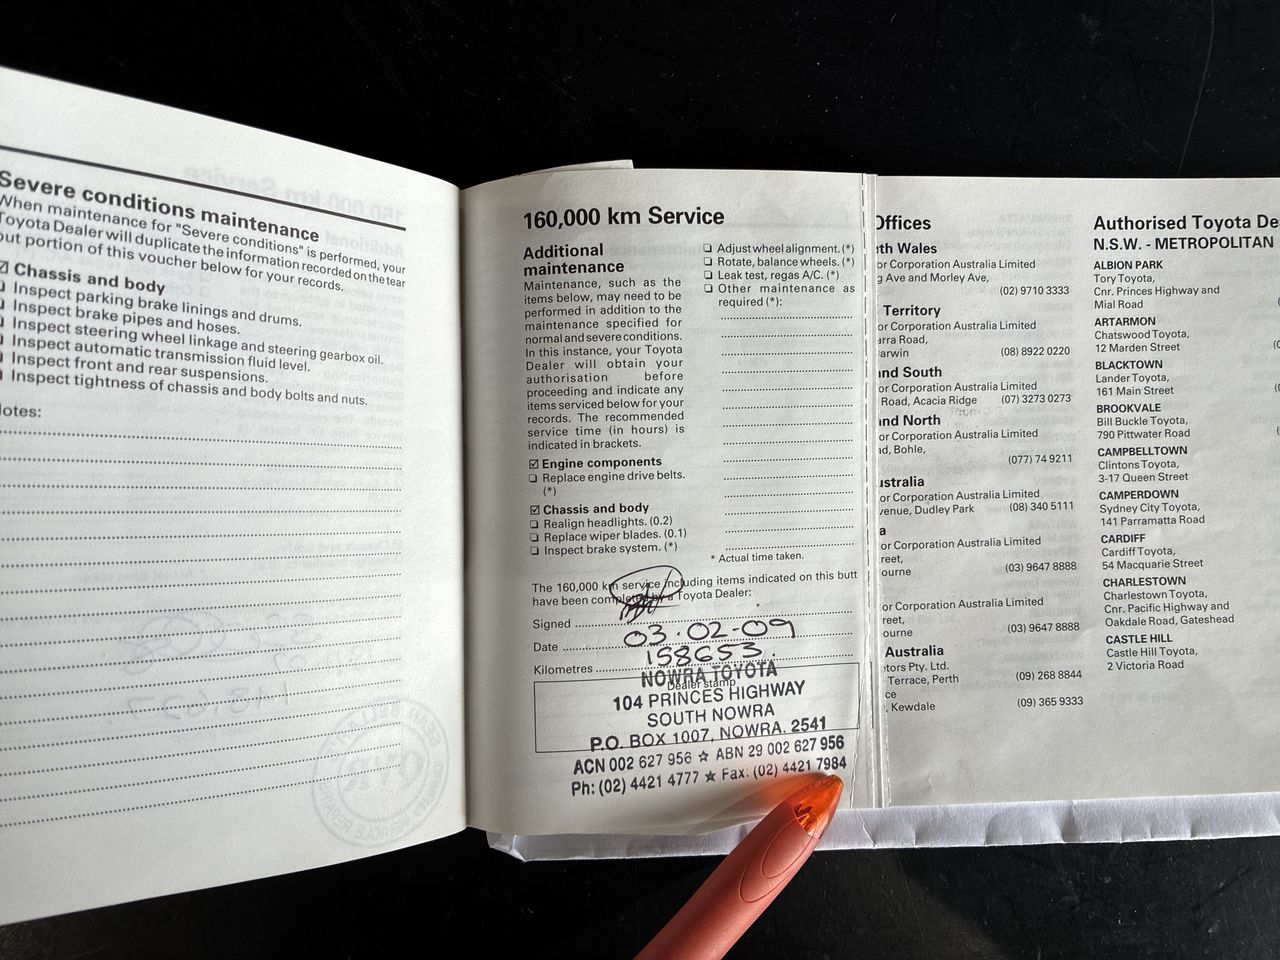 Severe conditions maintenance
When maintenance for "Severe conditions" is performed, your
Toyota Dealer will duplicate the information recorded on the tear
out portion of this voucher below for your records.
☑ Chassis and body
❏ Inspect parking brake linings and drums.
❏ Inspect brake pipes and hoses.
❏ Inspect steering wheel linkage and steering gearbox oil.
❏ Inspect automatic transmission fluid level.
❏ Inspect front and rear suspensions.
❏ Inspect tightness of chassis and body bolts and nuts.
lotes:
160,000 km Service
Additional
maintenance
Maintenance, such as the
items below, may need to be
performed in addition to the
maintenance specified for
normal and severe conditions.
In this instance, your Toyota
Dealer will obtain your
authorisation before
proceeding and indicate any
items serviced below for your
records. The recommended
service time (in hours) is
indicated in brackets.
☑ Engine components
❏ Replace engine drive belts.
(*)
☑ Chassis and body
❏ Realign headlights. (0.2)
❏ Replace wiper blades. (0.1)
❏ Inspect brake system. (*)
❏ Adjust wheel alignment. (*)
❏ Rotate, balance wheels. (*)
❏ Leak test, regas A/C. (*)
❏ Other maintenance as
required (*):
* Actual time taken.
The 160,000 km service including items indicated on this butt
have been completed by a Toyota Dealer:
Signed
Date 03.02-09
Kilometres 158653.
Dealer stamp
NOWRA TOYOTA
104 PRINCES HIGHWAY
SOUTH NOWRA
P.O. BOX 1007, NOWRA. 2541
ACN 002 627 956 ☆ ABN 29 002 627 956
Ph: (02) 4421 4777 ★ Fax: (02) 4421 7984
Offices
th Wales
or Corporation Australia Limited
g Ave and Morley Ave,
(02) 9710 3333
Territory
or Corporation Australia Limited
arra Road,
arwin (08) 8922 0220
and South
or Corporation Australia Limited
Road, Acacia Ridge (07) 3273 0273
and North
or Corporation Australia Limited
ad, Bohle,
(077) 74 9211
ustralia
or Corporation Australia Limited
venue, Dudley Park (08) 340 5111
a
or Corporation Australia Limited
reet,
ourne (03) 9647 8888
or Corporation Australia Limited
reet,
ourne (03) 9647 8888
Australia
tors Pty. Ltd.
Terrace, Perth (09) 268 8844
ce
, Kewdale (09) 365 9333
Authorised Toyota De
N.S.W. - METROPOLITAN
ALBION PARK
Tory Toyota,
Cnr. Princes Highway and
Mial Road
ARTARMON
Chatswood Toyota,
12 Marden Street
BLACKTOWN
Lander Toyota,
161 Main Street
BROOKVALE
Bill Buckle Toyota,
790 Pittwater Road
CAMPBELLTOWN
Clintons Toyota,
3-17 Queen Street
CAMPERDOWN
Sydney City Toyota,
141 Parramatta Road
CARDIFF
Cardiff Toyota,
54 Macquarie Street
CHARLESTOWN
Charlestown Toyota,
Cnr. Pacific Highway and
Oakdale Road, Gateshead
CASTLE HILL
Castle Hill Toyota,
2 Victoria Road